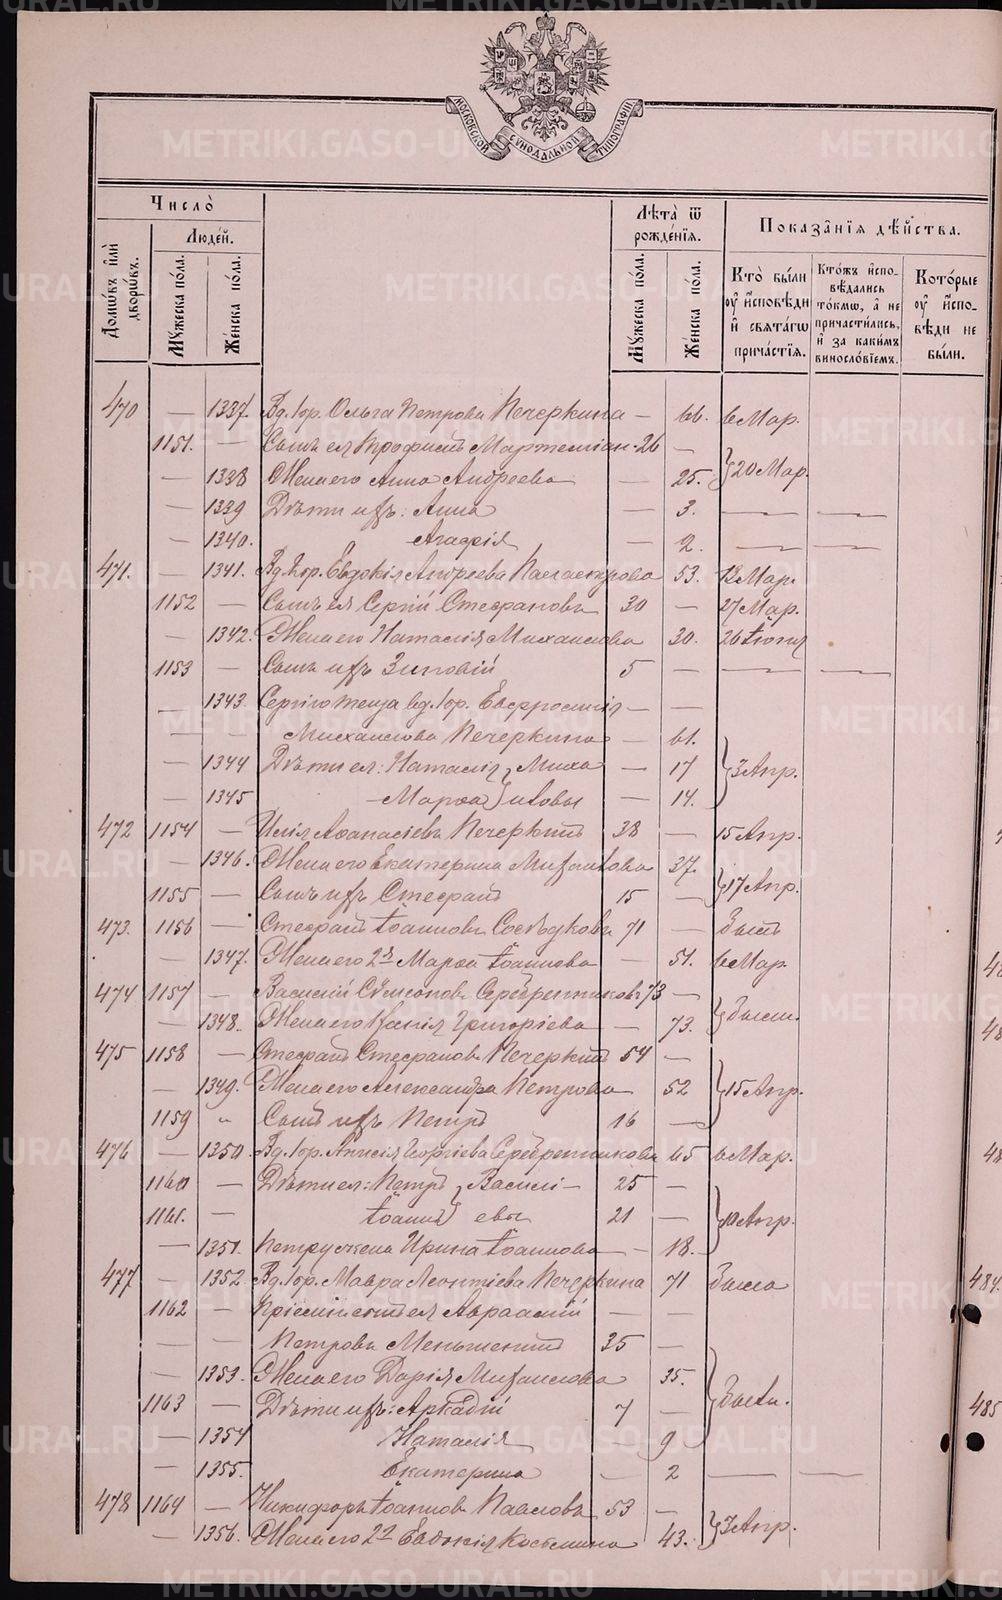 МОСКОВСКОЙ СѴНОДАЛЬНОЙ ТИПОГРАФІИ
Число̀
Домѡ́въ и҆лѝ дворѡ́въ.
Люде́й.
Мꙋ́жеска по́ла.
Же́нска по́ла.
Лѣ́та ѿ рожде́нїѧ.
Мꙋ́жеска по́ла.
Же́нска по́ла.
Показа̂нїѧ дѣ́йства.
Кто̀ бы́ли оу҆ и҆́сповѣди и҆ свѧта́гѡ прича́стїѧ.
Кто́жъ и҆спо-вѣ́дались то́кмѡ, а҆ не причасти́лись, и҆ за каки́мъ виносло́вїемъ.
Кото́рые оу҆ и҆спо-вѣди не бы́ли.
470 — 1337. Вд. гор. Ольга Петрова Печеркина — 66. 6 Мар.
1151. — Сынъ ея Трофимъ Мартеміан. 26 —
— 1338 Жена его Анна Андреева — 25. } 20 Мар.
— 1339 Дѣти ихъ: Анна — 3. — —
— 1340. Агафія — 2. — —
471. — 1341. Вд. гор. Евдокія Андреева 53. 12 Мар.
1152 — Сынъ ея Сергій Стефановъ 30 — 27 Мар.
— 1342. Жена его Наталія Михаилова 30. 26 Іюня
1153 — Сынъ ихъ Зиновій 5 — — —
— 1343. Сергія теща вд. гор. Евфросинія — —
— — Михаилова Печеркина — 61.
— 1344 Дѣти ея: Наталія } Миха — 17 } 3 Апр.
— 1345 — Марфа } иловы — 14.
472 1154 — Илія Афанасіевъ Печеркинъ 38 — 15 Апр.
— 1346. Жена его Екатерина Михаилова 37.
1155 — Сынъ ихъ Стефанъ 15 — } 17 Апр.
473. 1156 — Стефанъ Іоанновъ Сосѣдковъ 71 — Былъ
— 1347. Жена его 2я Марфа Іоаннова — 51. 6 Мар.
474 1157 — Василій Сѵмеоновъ Серебренниковъ 73 —
— 1348. Жена его Ксенія Григоріева — 73. } Были.
475 1158 — Стефанъ Стефановъ Печеркинъ 54 —
— 1349. Жена его Александра Петрова 52 } 15 Апр.
1159 „ Сынъ ихъ Петръ 16 —
476 — 1350. Вд. гор. Анисія Георгіева Серебренникова 65 6 Мар.
1160 — Дѣти ея: Петръ } Василі — 25 —
1161. — Іоаннъ } евы 21 — } 10 Апр.
— 1351. Петруж жена Ирина Іоаннова — 18.
477 — 1352. Вд. гор. Мавра Леонтіева Печеркина 71 Была
1162 — Пріемный сынъ ея Авраамій — —
— — Петровъ Меньшенинъ 35 —
— 1353. Жена его Дарія Михаилова 35.
1163 — Дѣти ихъ: Аркадій 7 — } Были.
— 1354 Наталія — 9
— 1355. Екатерина — 2 — —
478 1164 — Никифоръ Іоанновъ Павловъ 53 —
— 1356. Жена его 2я Евдокія Косьмина 43. } 3 Апр.
484.
485
METRIKI.GASO-URAL.RU